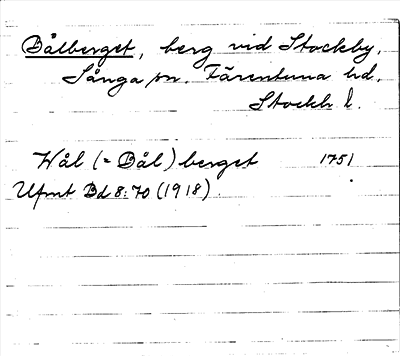 Bålberget, berg vid Stockby,
Sånga sn. Färentuna hd.
Stockh. l.
Wål (= Bål) berget 1751
Ufmt Bd 8:70 (1918).